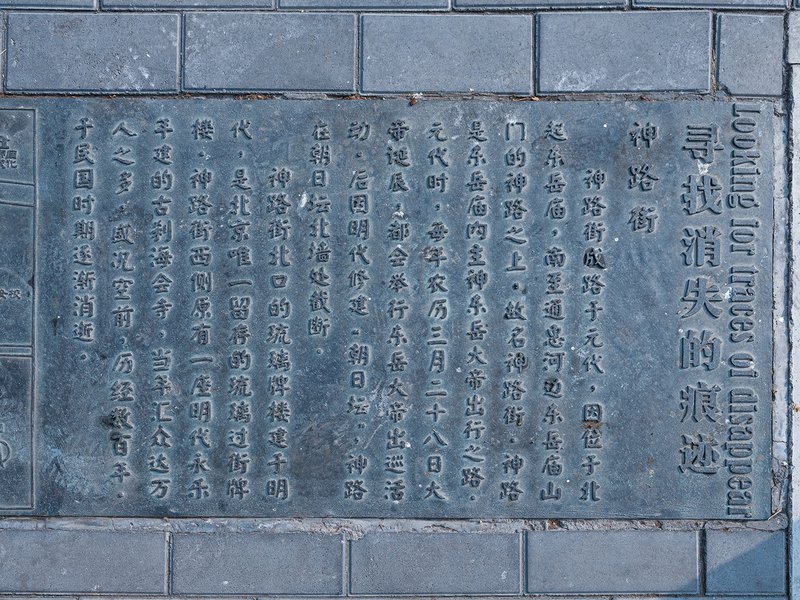 Looking for traces of disappear
寻找消失的痕迹
神路街
神路街成路于元代，因位于北
起东岳庙，南至通惠河边东岳庙山
门的神路之上，故名神路街。神路
是东岳庙内主神东岳大帝出行之路。
元代时，每年农历三月二十八日大
帝诞辰，都会举行东岳大帝出巡活
动。后因明代修建“朝日坛”，神路
在朝日坛北墙处截断。
神路街北口的琉璃牌楼建于明
代，是北京唯一留存的琉璃过街牌
楼。神路街西侧原有一座明代永乐
年建的古刹海会寺，当年汇众达万
人之多，盛况空前，历经数百年，
于民国时期逐渐消逝。